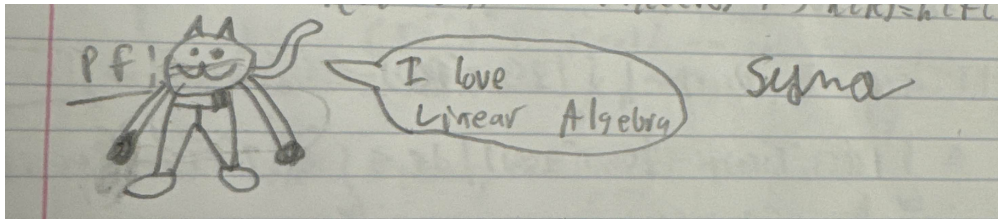 pf:
I love
Linear Algebra